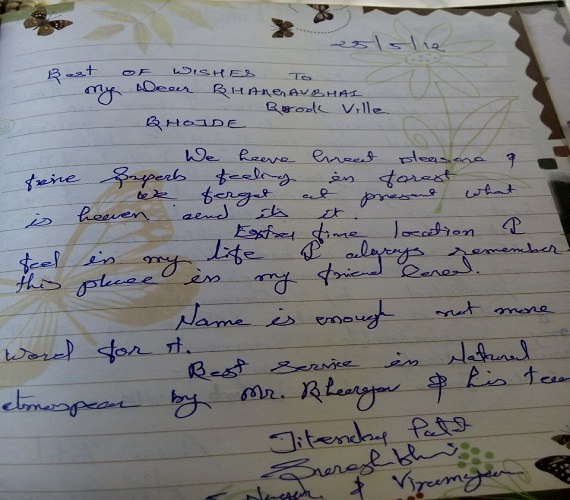 25/5/12
Best OF WISHES To
My Dear BHARGAVBHAI
Brook Ville
BHOJDE
We heave Great pleasure &
fine Superb feeling in forest
we forget at present what
is heaven and is it.
Extra fine location I
feel in my life I always remember
this place in my friend
Name is enough not more
word for it.
Best service in Natural
etmospear by Mr. Bhargav & his team
Jitendra
& Viramgam